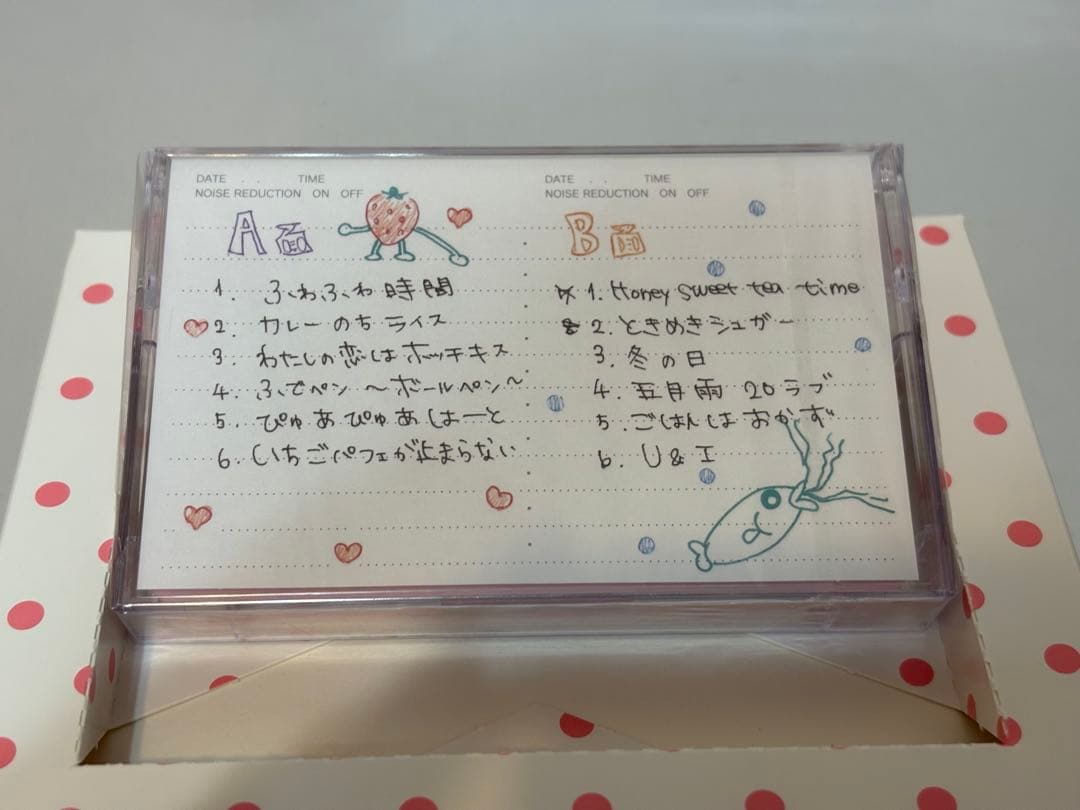 DATE . . TIME
NOISE REDUCTION ON OFF
A面
1. ふわふわ時間
2. カレーのちライス
3. わたしの恋はホッチキス
4. ふでペン 〜ボールペン〜
5. ぴゅあぴゅあはーと
6. いちごパフェが止まらない
DATE . . TIME
NOISE REDUCTION ON OFF
B面
1. Honey sweet tea time
2. ときめきシュガー
3. 冬の日
4. 五月雨 20ラブ
5. ごはんはおかず
6. U & I